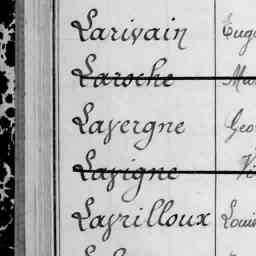 Larivain Eug
Laroche Ma
Lavergne Geo
Lavigne Vi
Lavrilloux Loui